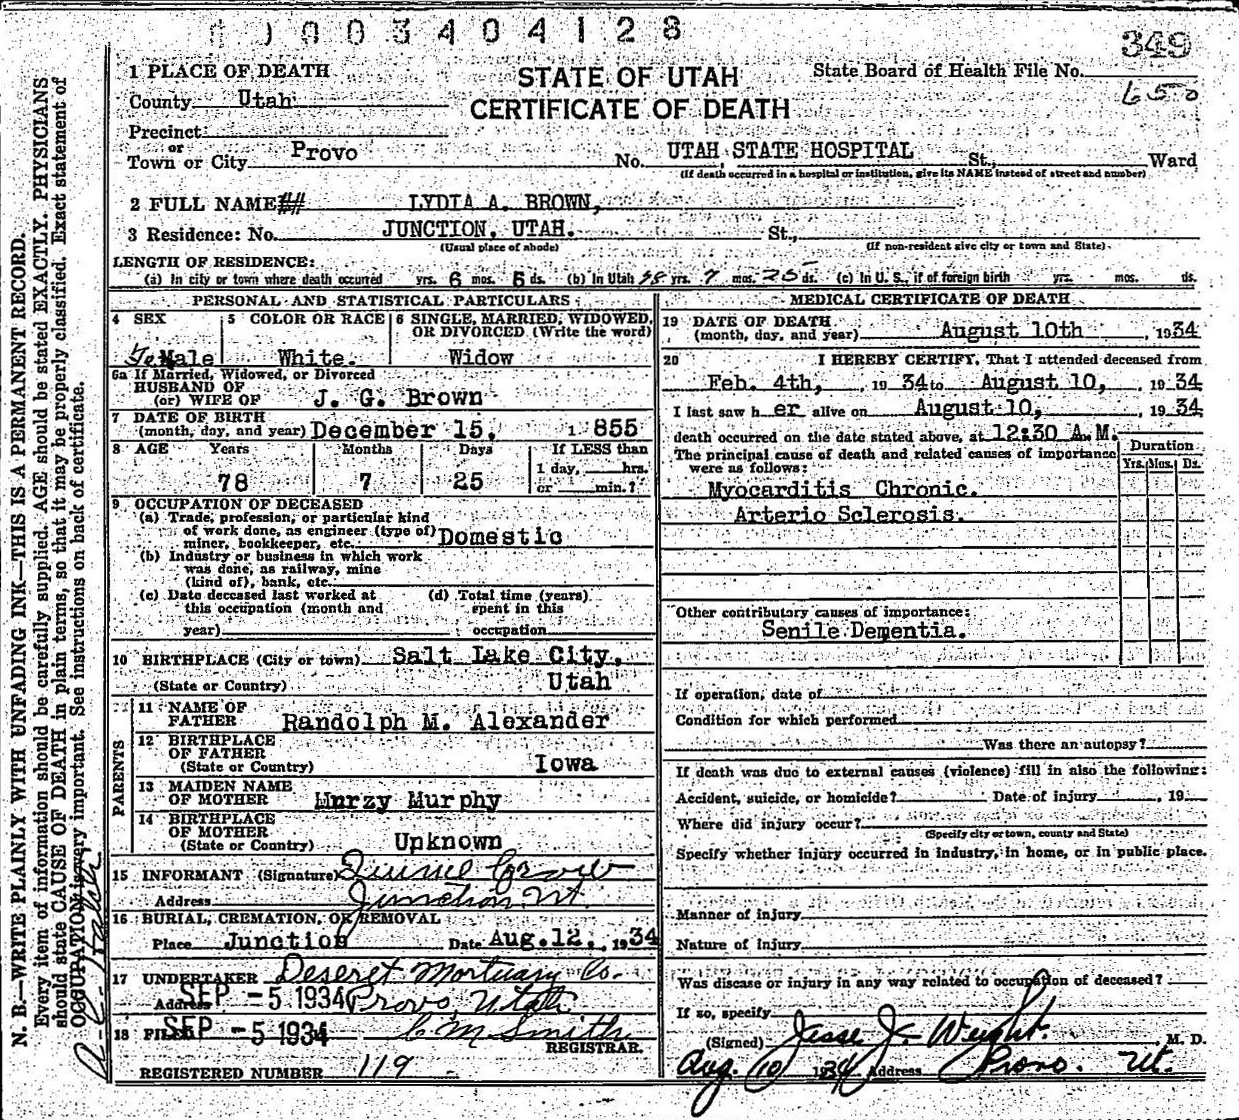 0003404128
349
1 PLACE OF DEATH
STATE OF UTAH
State Board of Health File No.
County Utah
CERTIFICATE OF DEATH
650
Precinct
or
Town or City Provo No. UTAH STATE HOSPITAL St., Ward
(If death occurred in a hospital or institution, give its NAME instead of street and number)
2 FULL NAME LYDIA A. BROWN,
3 Residence: No. JUNCTION, UTAH. St.,
(Usual place of abode) (If non-resident give city or town and State)
LENGTH OF RESIDENCE:
(a) In city or town where death occurred yrs. 6 mos. 6 ds. (b) In Utah 78 yrs. 7 mos. 25 ds. (c) In U. S., if of foreign birth yrs. mos. ds.
PERSONAL AND STATISTICAL PARTICULARS
4 SEX 5 COLOR OR RACE 6 SINGLE, MARRIED, WIDOWED, OR DIVORCED (Write the word)
FeMale White. Widow
6a If Married, Widowed, or Divorced
HUSBAND OF
(or) WIFE OF J. G. Brown
7 DATE OF BIRTH
(month, day, and year) December 15, 1855
8 AGE Years Months Days If LESS than
1 day, hrs.
78 7 25 or min.?
9 OCCUPATION OF DECEASED
(a) Trade, profession, or particular kind
of work done, as engineer (type of)
miner, bookkeeper, etc. Domestic
(b) Industry or business in which work
was done, as railway, mine
(kind of), bank, etc.
(c) Date deceased last worked at (d) Total time (years)
this occupation (month and spent in this
year) occupation
10 BIRTHPLACE (City or town) Salt Lake City,
(State or Country) Utah
PARENTS
11 NAME OF
FATHER Randolph M. Alexander
12 BIRTHPLACE
OF FATHER
(State or Country) Iowa
13 MAIDEN NAME
OF MOTHER Murzy Murphy
14 BIRTHPLACE
OF MOTHER
(State or Country) Upknown
15 INFORMANT (Signature)
Address Junction, Ut.
16 BURIAL, CREMATION, OR REMOVAL
Place Junction Date Aug. 12, 1934
17 UNDERTAKER Deseret Mortuary Co.
Address SEP -5 1934 Provo, Utah
18 FILED SEP -5 1934 C M Smith
REGISTRAR.
REGISTERED NUMBER 119
MEDICAL CERTIFICATE OF DEATH
19 DATE OF DEATH
(month, day, and year) August 10th, 1934
20 I HEREBY CERTIFY, That I attended deceased from
Feb. 4th, 1934 to August 10, 1934
I last saw her alive on August 10, 1934
death occurred on the date stated above, at 12:30 A.M.
The principal cause of death and related causes of importance
were as follows:
Duration
Yrs. Mos. Ds.
Myocarditis Chronic.
Arterio Sclerosis.
Other contributory causes of importance:
Senile Dementia.
If operation, date of
Condition for which performed
Was there an autopsy?
If death was due to external causes (violence) fill in also the following:
Accident, suicide, or homicide? Date of injury , 19
Where did injury occur?
(Specify city or town, county and State)
Specify whether injury occurred in industry, in home, or in public place.
Manner of injury
Nature of injury
Was disease or injury in any way related to occupation of deceased?
If so, specify
(Signed) Jesse J. Weight. M. D.
Aug. 10 1934 Address Provo. Ut.
N. B.—WRITE PLAINLY WITH UNFADING INK—THIS IS A PERMANENT RECORD.
Every item of information should be carefully supplied. AGE should be stated EXACTLY. PHYSICIANS
should state CAUSE OF DEATH in plain terms, so that it may be properly classified. Exact statement of
OCCUPATION is very important. See instructions on back of certificate.